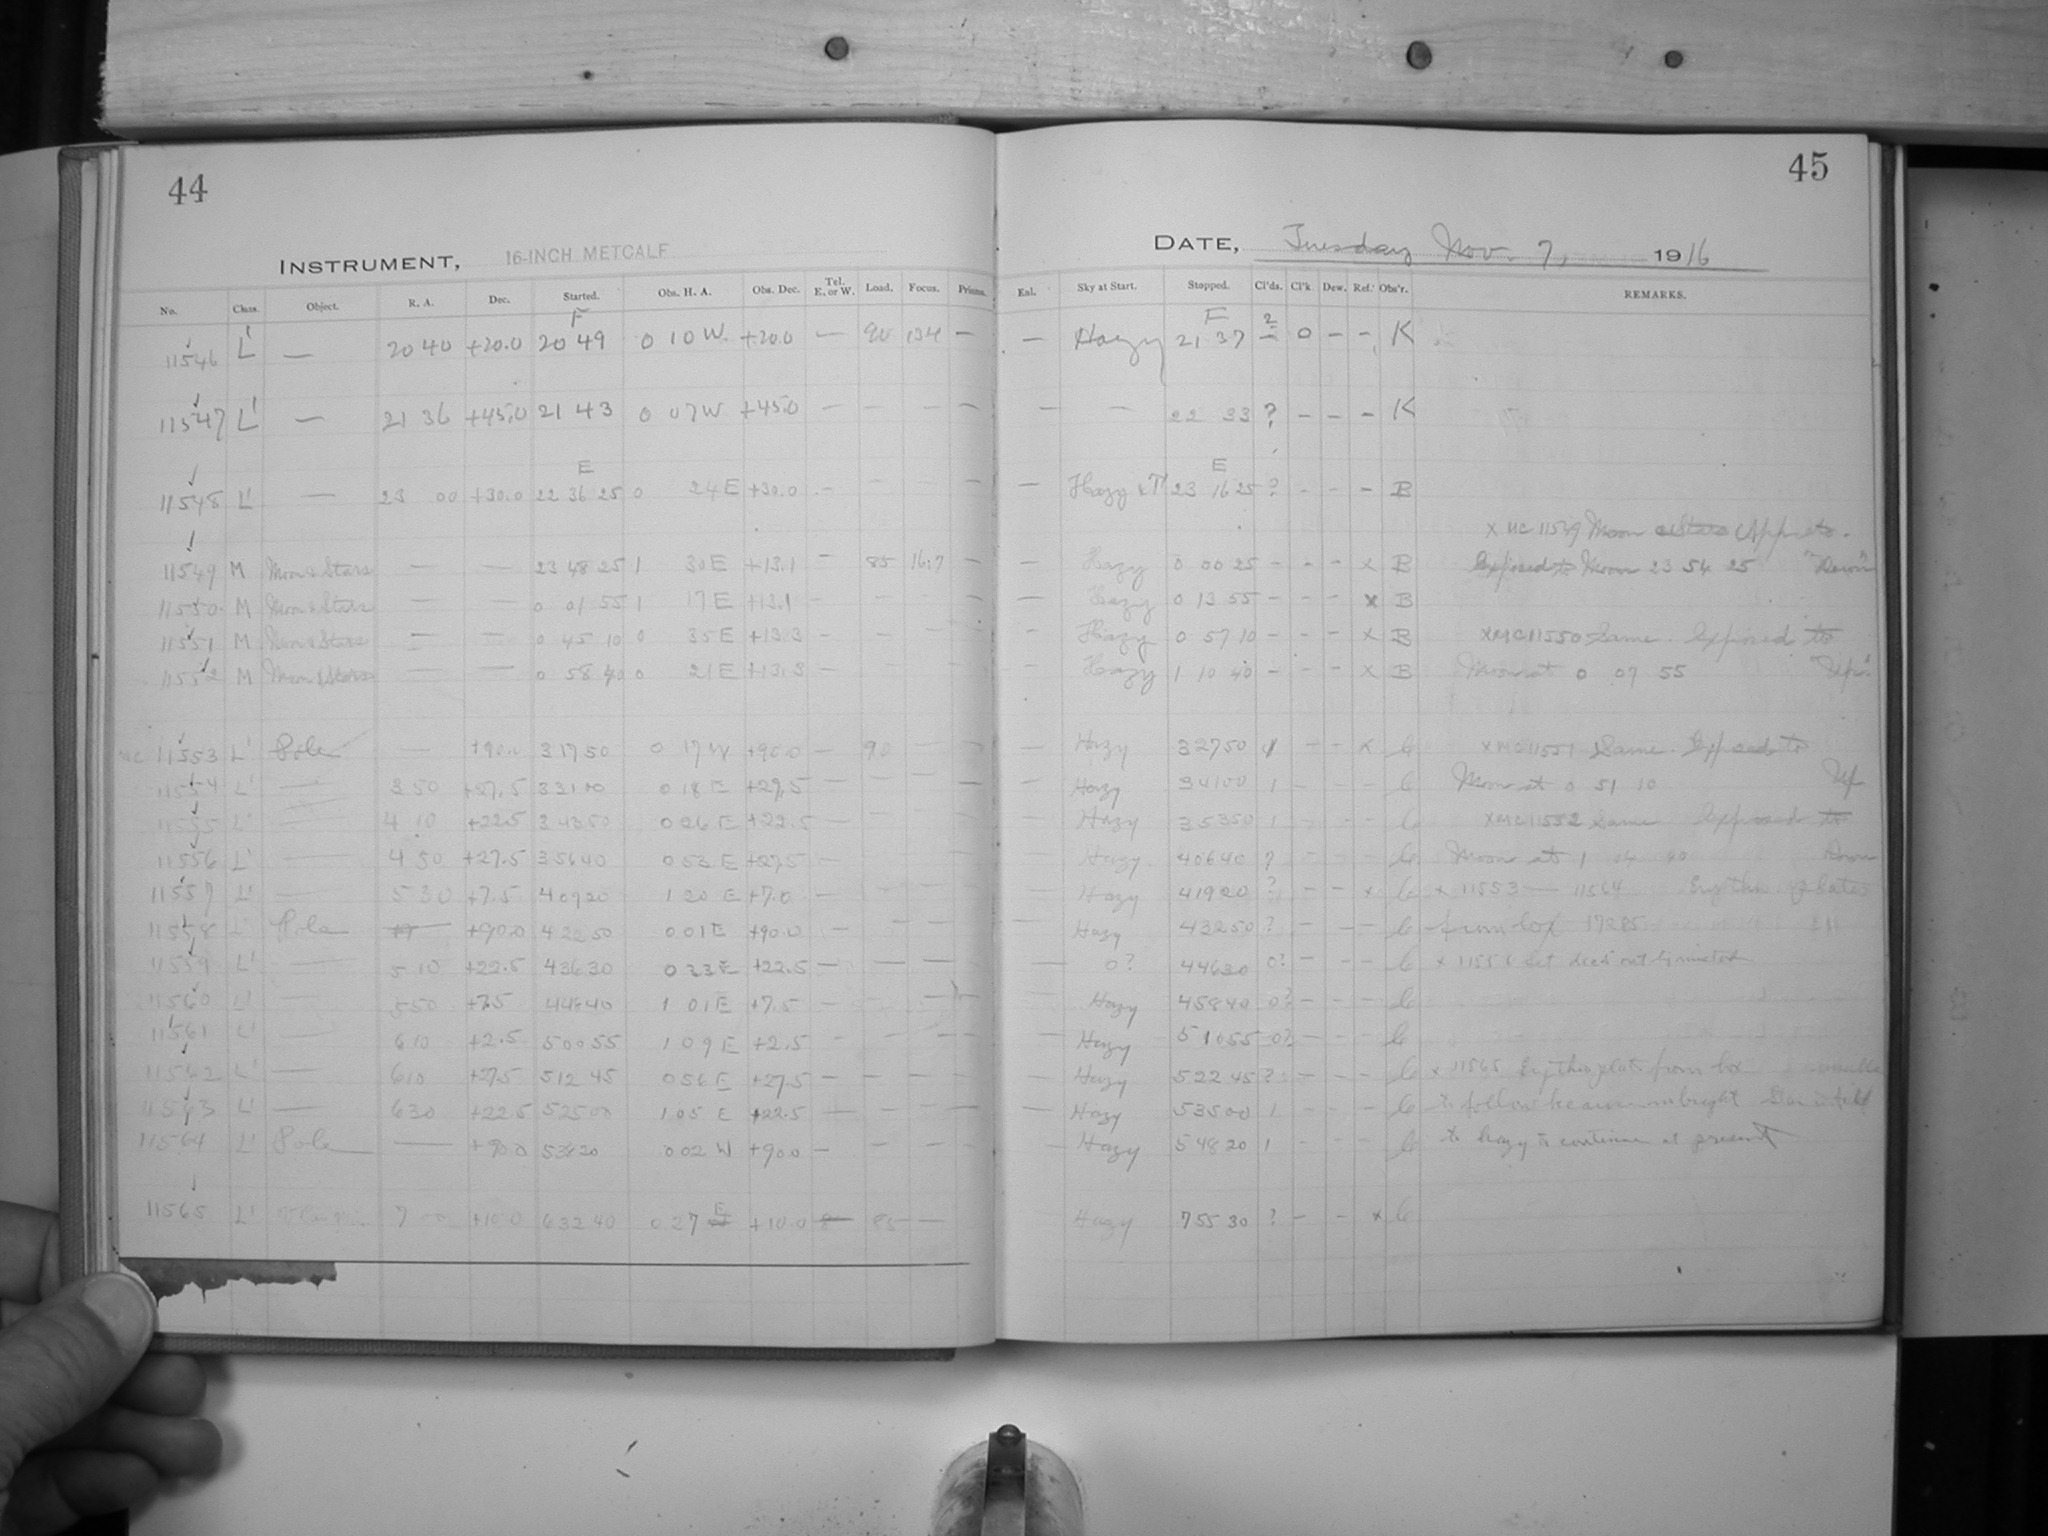 44
INSTRUMENT, 16-INCH METCALF
No. Class. Object. R. A. Dec. Started. Obs. H. A. Obs. Dec. Tel. E. or W. Load. Focus. Prisms.
F
11546 L' — 20 40 +20.0 20 49 0 10 W +20.0 — 90 13.4 —
11547 L' — 21 36 +45.0 21 43 0 07 W +45.0 — — — —
E
11548 L' — 23 00 +30.0 22 36 25 0 24 E +30.0 — — — —
11549 M Moon & Stars — — 23 48 25 1 30 E +13.1 — 85 16.7 —
11550 M Moon & Stars — — 0 01 55 1 17 E +13.1 — — — —
11551 M Moon & Stars — — 0 45 10 0 35 E +13.3 — — — —
11552 M Moon & Stars — — 0 58 40 0 21 E +13.3 — — — —
MC 11553 L' Pole — +90.0 3 17 50 0 17 W +90.0 — 90 — —
11554 L' — 3 50 +27.5 3 31 00 0 18 E +27.5 — — — —
11555 L' — 4 10 +22.5 3 43 50 0 26 E +22.5 — — — —
11556 L' — 4 50 +27.5 3 56 40 0 53 E +27.5 — — — —
11557 L' — 5 30 +7.5 4 09 20 1 20 E +7.0 —
11558 L' Pole — +90.0 4 22 50 0 01 E +90.0 — — —
11559 L' — 5 10 +22.5 4 36 30 0 33 E +22.5 — — — —
11560 L' — 5 50 +7.5 4 48 40 1 01 E +7.5 — — — —
11561 L' — 6 10 +2.5 5 00 55 1 09 E +2.5 — — — —
11562 L' — 6 10 +27.5 5 12 45 0 56 E +27.5 — — — —
11563 L' — 6 30 +22.5 5 25 00 1 05 E +22.5 — — — —
11564 L' Pole — +90.0 5 38 20 0 02 W +90.0 — — — —
11565 L' 7 00 +10.0 6 32 40 0 27 E +10.0 — 85 —
45
DATE, Tuesday Nov. 7, 1916
Enl. Sky at Start. Stopped. Cl'ds. Cl'k. Dew. Ref. Obs'r. REMARKS.
F
— Hazy 21 37 2 0 — — K
— — 22 33 ? — — — K
E
— Hazy 23 16 25 ? — — — B
x MC 11549 Moon
— Hazy 0 00 25 — — — x B Exposed to Moon 23 54 25 "Down"
— Hazy 0 13 55 — — — x B
— Hazy 0 57 10 — — — x B x MC 11550 Same. Exposed to
— Hazy 1 10 40 — — — x B Moon at 0 07 55 "Up."
— Hazy 3 27 50 1 — — x C x MC 11551 Same. Exposed to
— Hazy 3 41 00 1 — — — C Moon at 0 51 10 Up
— Hazy 3 53 50 1 — — — C x MC 11552 Same Exposed to
— Hazy 4 06 40 ? — — — C Moon at 1 04 40 Down
— Hazy 4 19 20 ? — — x C x 11553 — 11564 Erythro plates
— Hazy 4 32 50 ? — — — C from box 17285
— 0? 4 46 30 0? — — — C
— Hazy 4 58 40 0? — — — C
— Hazy 5 10 55 0? — — — C
— Hazy 5 22 45 ? — — — C x 11565 Erythro plate from box
— Hazy 5 35 00 1 — — — C to follow star in field
— Hazy 5 48 20 1 — — — C to hazy to continue at present
Hazy 7 55 30 ? — — x C